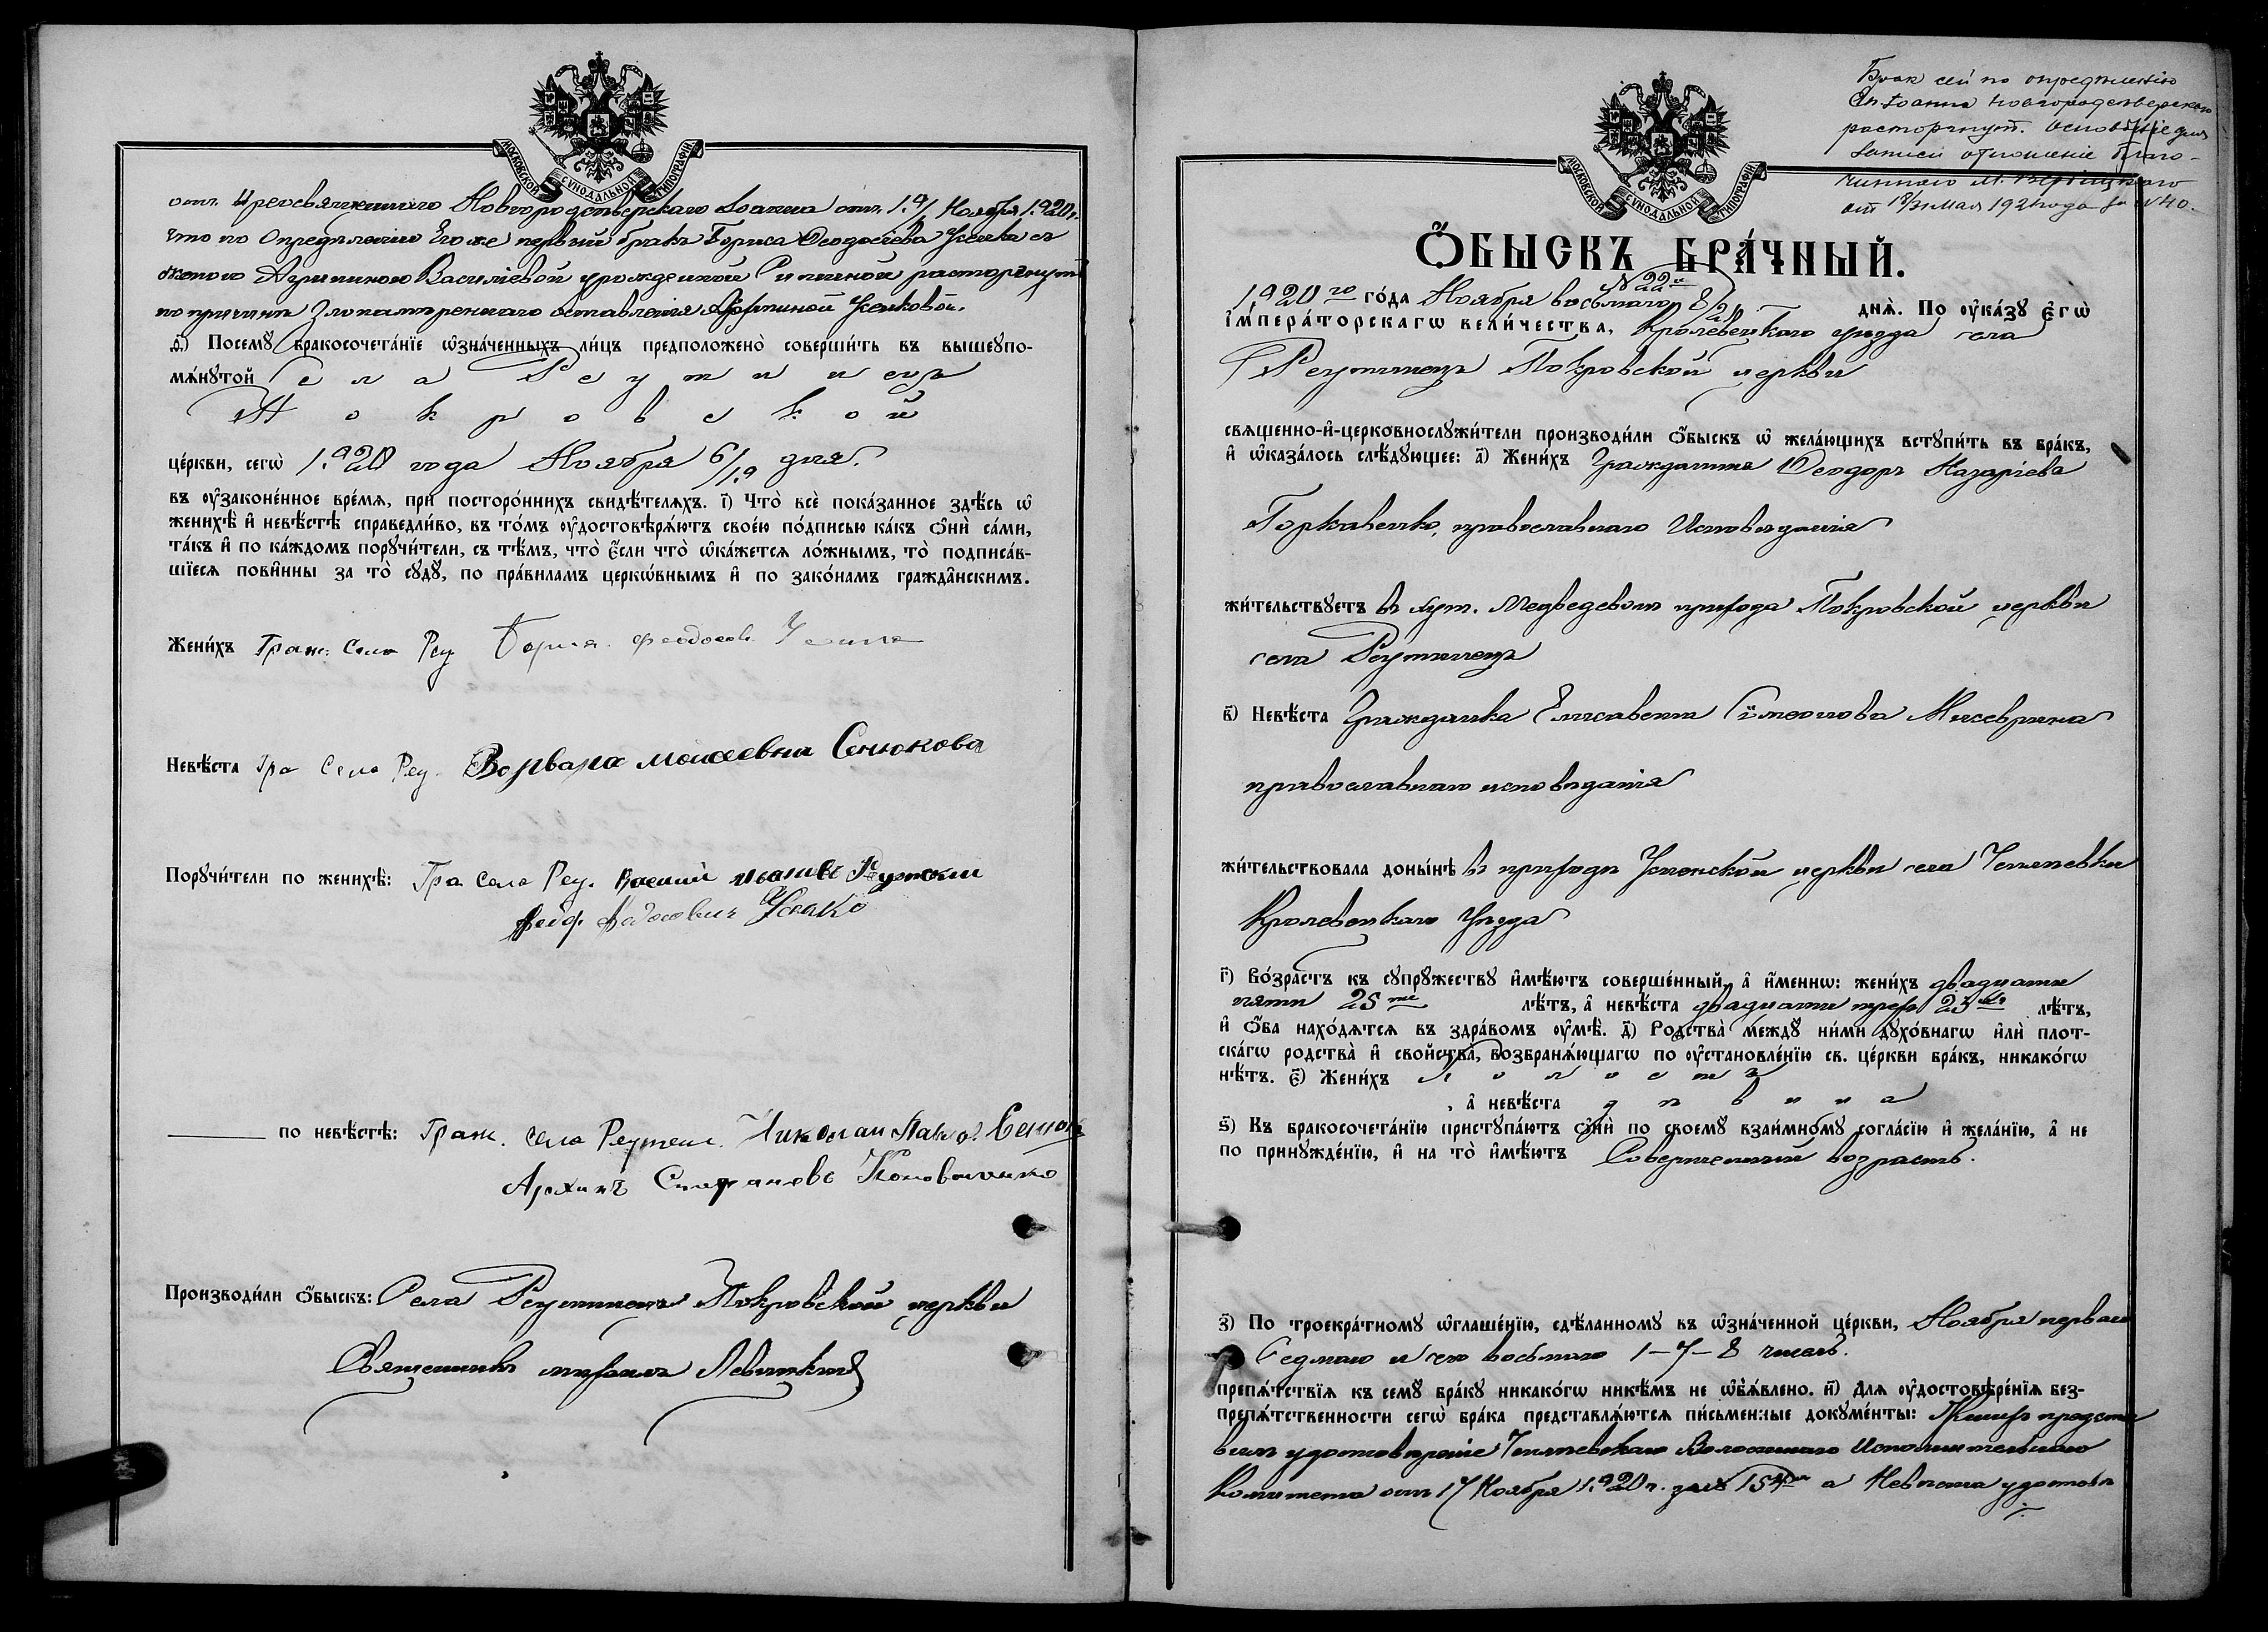 МОСКОВСКОЙ СѴНОДАЛЬНОЙ ТИПОГРАФІИ
отъ Преосвященнаго Новгородсѣверскаго Іоанна отъ 1.9/ Ноября 1920 г.
что по Опредѣленію Его же первый бракъ Бориса Ѳеодосіева Усенка съ
женою Агрипиною Васильевой урожденной расторгнутъ
по причинѣ оставленія Усенковой.
ѳ҃) Посемꙋ̀ бракосочета́нїе ѡ҆зна́ченныхъ ли́цъ предположено̀ соверши́ть въ вышеꙋпо-
мѧ́нꙋтой села Реутинецъ
Покровской
це́ркви, сегѡ̀ 1920 года Ноября 6/19 дня.
въ ᲂу҆зако́нное вре́мѧ, при посторо́ннихъ свидѣ́телѧхъ. і҃) Что̀ всѐ пока́занное здѣ́сь ѡ҆
женихѣ̀ и҆ невѣ́стѣ справедли́во, въ то́мъ ᲂу҆достовѣрѧ́ютъ свое́ю по́дписью ка́къ ѻ҆нѝ са́ми,
та́къ и҆ по ка́ждомъ порꙋчи́тели, съ тѣ́мъ, что̀ є҆́сли что̀ ѡ҆ка́жетсѧ ло́жнымъ, то̀ подписа́в-
шїесѧ пови́нны за то̀ сꙋдꙋ̀, по пра́виламъ церкѡ́внымъ и҆ по зако́намъ гражда́нскимъ.
Жени́хъ Граж. Села Реу Борисъ Феодосов. Усенко
Невѣ́ста Гра Села Реу. Варвара Моисеевна Сенюкова
Порꙋчи́тели по женихѣ̀: Гра Села Реу. Василий
Усенко
по невѣ́стѣ: Граж. села Реутин. Николай Павлов Сенюк
Архипъ Стефановъ Коноваленко
Производи́ли ѻ҆́быскъ: Села Реутинецъ Покровской церкви
Священникъ Михаилъ Левицкій
Бракъ сей по опредѣленію
Еп. Іоанна Новгородсѣверскаго
расторгнутъ. Основаніе для
записи отношеніе Благо-
чиннаго М. Вербицкаго
отъ 18/31 Мая 1921 года за № 40.
МОСКОВСКОЙ СѴНОДАЛЬНОЙ ТИПОГРАФІИ
Ѻ҆́БЫСКЪ БРА́ЧНЫЙ.
№ 22й
1920го го́да Ноября восьмаго 8/21 днѧ̀. По ᲂу҆ка́зꙋ Є҆гѡ̀
і҆мпера́торскагѡ вели́чества, Кролевецкаго уѣзда села
Реутинецъ Покровской церкви
свѧщенно-и҆-церковнослꙋжи́тели производи́ли ѻ҆́быскъ ѡ҆ жела́ющихъ встꙋпи́ть въ бра́къ,
и҆ ѡ҆каза́лось слѣ́дꙋющее: а҃) Жени́хъ Гражданинъ Ѳеодоръ Назаріевъ
Горкавенко, православнаго Исповѣданія
жи́тельствꙋетъ въ хут. Медведевомъ прихода Покровской церкви
села Реутинецъ
в҃) Невѣ́ста Гражданка Елисавета Сѵмеонова Мисеврина
православнаго исповѣданія
жи́тельствовала доны́нѣ въ приходѣ Успенской церкви села Чепліевки
Кролевецкаго Уѣзда
г҃) Во́зрастъ къ сꙋпрꙋ́жествꙋ и҆мѣ́ютъ соверше́нный, а҆ и҆́меннѡ: жени́хъ двадцати
пяти 25ти лѣ́тъ, а҆ невѣ́ста двадцати трехъ 23хъ лѣ́тъ,
и҆ ѻ҆́ба нахо́дѧтсѧ въ здра́вомъ ᲂу҆мѣ̀. д҃) Родства̀ ме́ждꙋ ни́ми дꙋхо́внагѡ и҆лѝ плот-
ска́гѡ родства̀ и҆ свойства̀, возбранѧ́ющагѡ по ᲂу҆становле́нїю св. це́ркви бра́къ, никако́гѡ
нѣ́тъ. є҃) Жени́хъ холостъ
, а҆ невѣ́ста дѣвица
ѕ҃) Къ бракосочета́нїю пристꙋпа́ютъ ѻ҆нѝ по своемꙋ̀ взаи́мномꙋ согла́сїю и҆ жела́нїю, а҆ не
по принꙋжде́нїю, и҆ на то̀ и҆мѣ́ютъ Совершенный возрастъ.
з҃) По троекра́тномꙋ ѡ҆глаше́нїю, сдѣ́ланномꙋ въ ѡ҆зна́ченной це́ркви, Ноября перваго
Седмаго и сего восьмаго 1–7–8 числъ.
препѧ́тствїѧ къ семꙋ̀ бра́кꙋ никако́гѡ никѣ́мъ не ѡ҆б̾ѧ́влено. и҃) Длѧ ᲂу҆достовѣре́нїѧ без-
препѧ́тственности сегѡ̀ бра́ка представлѧ́ютсѧ пи́сьменные докꙋме́нты: Женихъ предста
вилъ удостовѣреніе Чепліевскаго Волостнаго Исполнительнаго
Комитета отъ 17 Ноября 1920 г. за № 154м а Невѣста удостовѣ